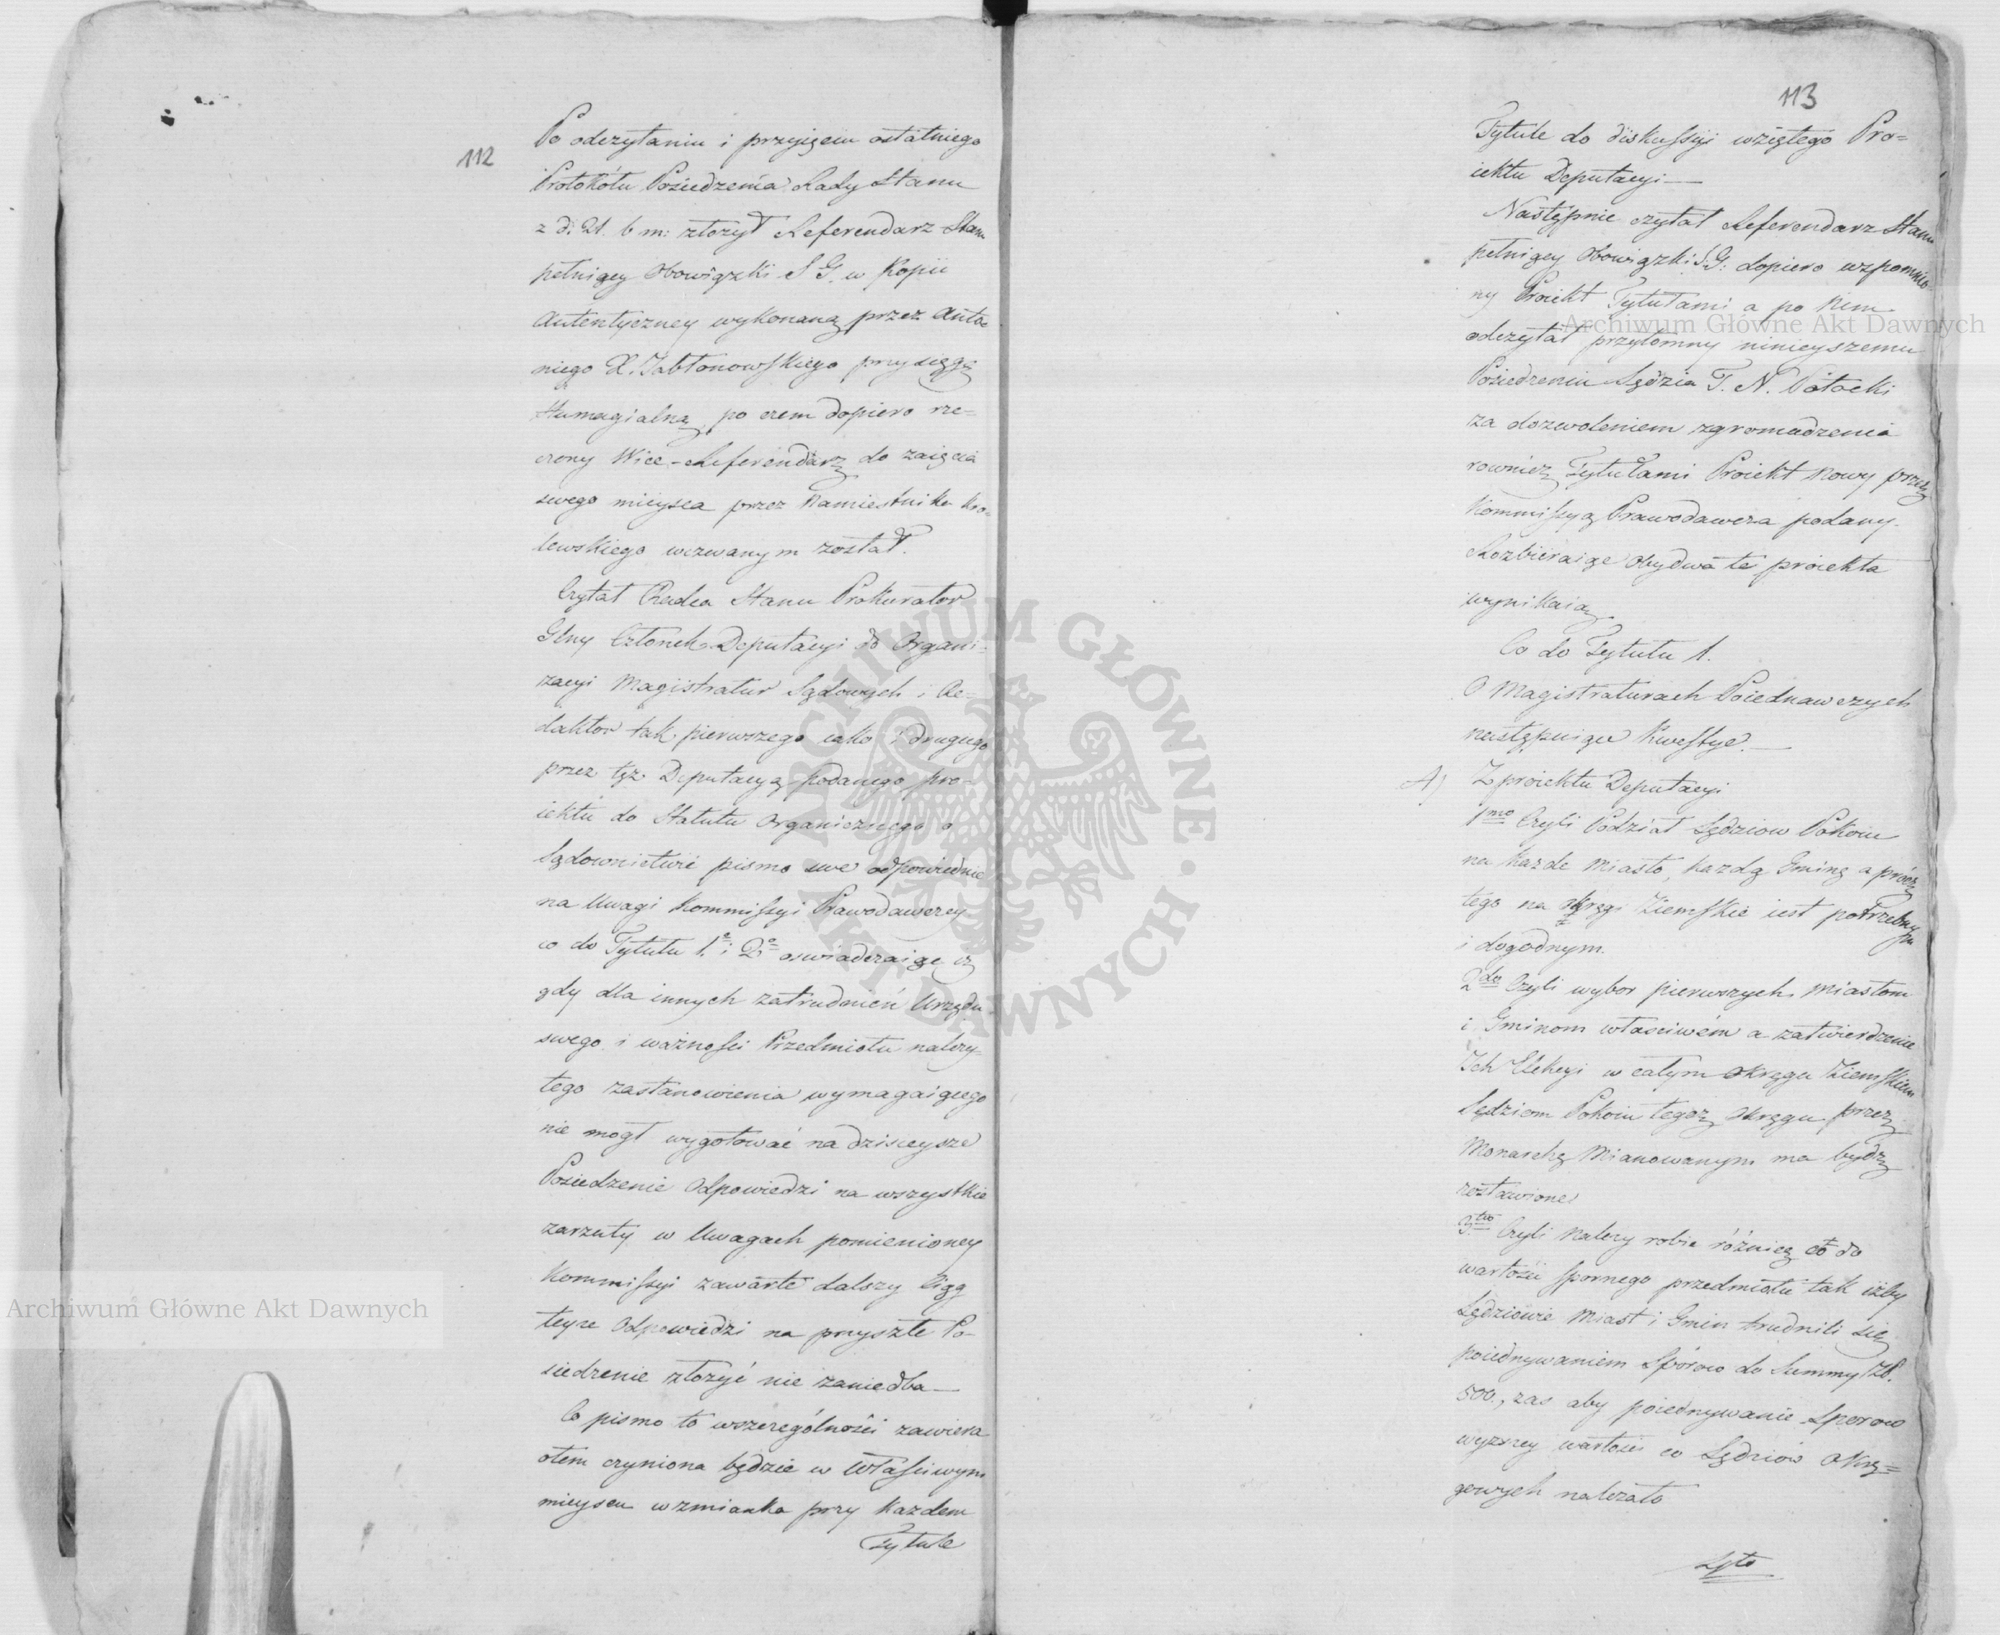 112
Po odczytaniu i przyjęciu ostatniego
Protokółu Posiedzenia Rady Stanu
z d. 21. b m: złożył Referendarz Stanu
pełniący Obowiązki S G. w Kopii
Autentyczney wykonaną przez Anto-
niego X. Jabłonowskiego przysięgę
Homagialną, po czem dopiero rze-
czony Wice-Referendarz do zaięcia
swego mieysca przez Namiestnika Kró-
lewskiego wezwanym został.
Czytał Radca Stanu Prokurator
Glny Członek Deputacyi do Organi-
zacyi Magistratur Sądowych i Re-
daktor tak pierwszego iako i drugiego
przez tęż Deputacyą podanego pro-
iektu do Statutu Organicznego o
Sądownictwie pismo swe odpowiednie
na Uwagi Kommissyi Prawodawczey
co do Tytułu 1o i 2o oswiadczaiąc iż
gdy dla innych zatrudnień Urzędu
swego i ważności Przedmiotu należy-
tego zastanowienia wymagaiącego
nie mogł wygotować na dzisieysze
Posiedzenie Odpowiedzi na wszystkie
zarzuty w Uwagach pomienioney
Kommissyi zawarte dalszy Ciąg
teyże Odpowiedzi na przyszłe Po-
siedzenie złożyć nie zaniedba —
Co pismo to wszczególności zawiera
otem czyniona będzie w Właściwym
mieyscu wzmianka przy każdem
Tytule
113
Tytule do diskussyi wziętego Pro=
iektu Deputacyi —
Następnie czytał Referendarz Stanu
pełniący Obowiązki S.G: dopiero wzpomnio-
ny Proiekt Tytułami a po Nim
odczytał przytomny ninieyszemu
Posiedzeniu Sędzia T. N. Potocki
za dozwoleniem zgromadzenia
rownież Tytułami Proiekt Nowy przez
Kommissyą Prawodawczą podany.
Rozbieraiąc obydwa te proiekta
wynikaią
Co do Tytułu 1.
O Magistraturach Poiednawczych
następuiące Kwestye. —
A) Z proiektu Deputacyi
1mo Czyli Podział Sędziow Pokoiu
na każde Miasto, każdą Gminę a prócz
tego na okręgi Ziemskie iest potrzebnym
i dogodnym.
2do Czyli wybor pierwszych Miastom
i Gminom właściwém a zatwierdzenie
Ich Elekcyi w całym okręgu Ziemskiem
Sędziom Pokoiu tegoż okręgu przez
Monarchę Mianowanym ma bydź
zostawione.
3tio Czyli należy robić różnicę co do
wartości spornego przedmiotu tak iżby
Sędziowie Miast i Gmin trudnili się
poiednywaniem Sporow do Summy Złp.
500., zas aby poiednywanie Sporow
wyższey wartości do Sędziów Okrę=
gowych należało
4to
Archiwum Główne Akt Dawnych
Archiwum Główne Akt Dawnych
ARCHIWUM GŁÓWNE AKT DAWNYCH